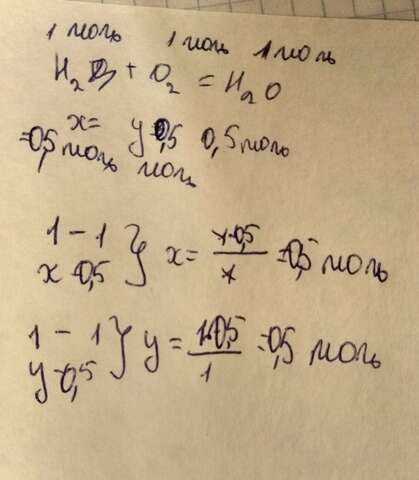 1 моль 1 моль 1 моль
H₂ + O₂ = H₂O
x= y=0,5 0,5 моль
=0,5 моль моль
1 – 1 } x = 1·0,5 / 1 = 0,5 моль
x – 0,5
1 – 1 } y = 1·0,5 / 1 = 0,5 моль
y – 0,5